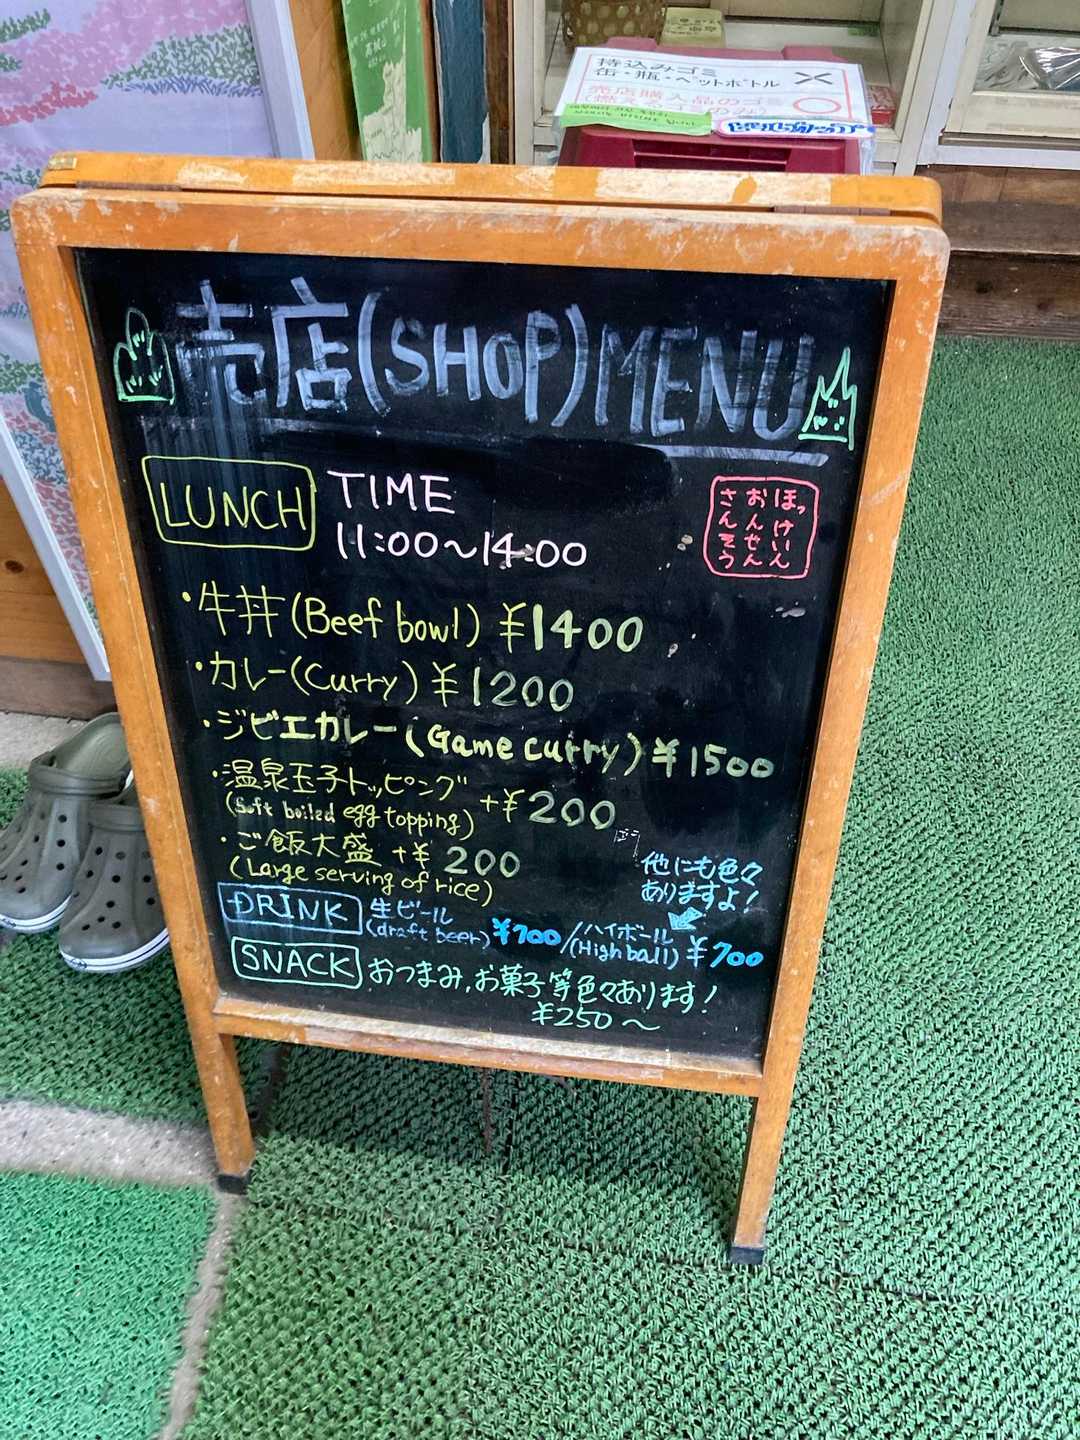 持込みゴミ
缶・瓶・ペットボトル
売店購入品のゴミ
(燃えるゴミのみ)
売店(SHOP)MENU
LUNCH TIME
11:00〜14:00
ほっけいん
おんせん
さんそう
・牛丼(Beef bowl) ¥1400
・カレー(Curry) ¥1200
・ジビエカレー(Game curry) ¥1500
・温泉玉子トッピング +¥200
(Soft boiled egg topping)
・ご飯大盛 +¥200
(Large serving of rice)
他にも色々
ありますよ!
DRINK 生ビール (draft beer) ¥700/ハイボール (High ball) ¥700
SNACK おつまみ,お菓子等色々あります!
¥250〜